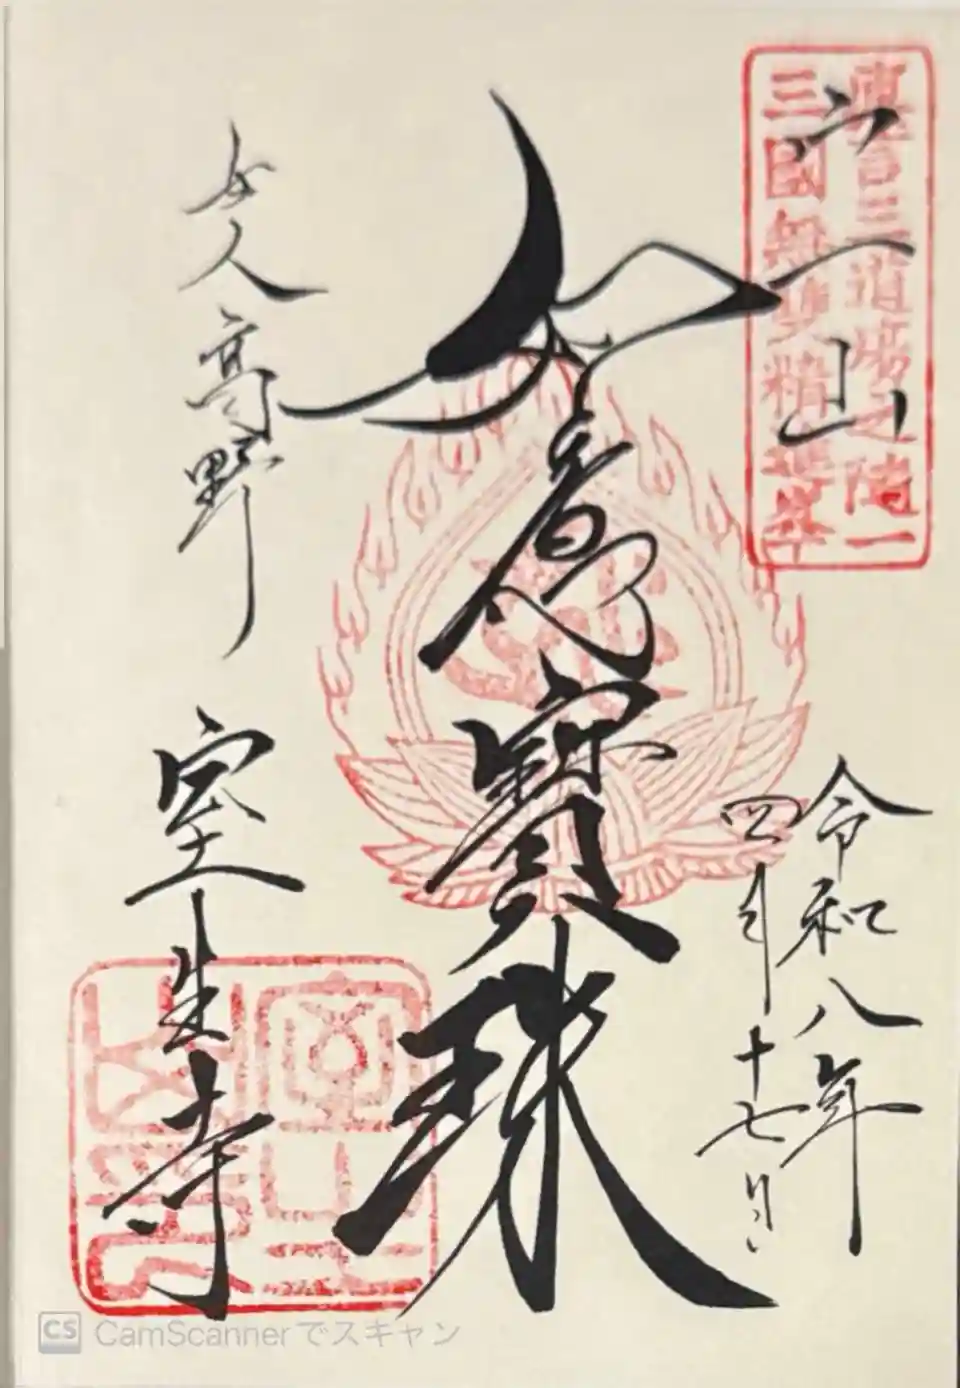 宀一山
三道場之随一
三國無雙精
令和八年
四月十七日
如意寶珠
女人高野
室生寺
CS CamScannerでスキャン